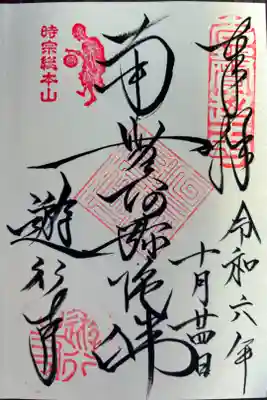 奉拝
令和六年
十月廿四日
南無阿弥陀佛
時宗総本山
遊行寺